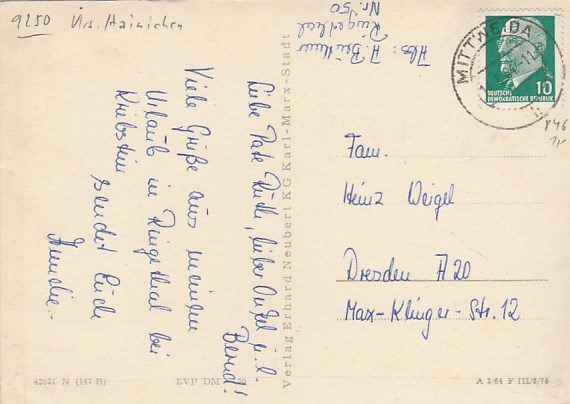 9250 Krs. Hainichen
Abs: A. Beuthner
Ringethal
Nr. 50
MITTWEIDA
DEUTSCHE
DEMOKRATISCHE REPUBLIK
10
Liebe Tante Ruth, lieber Onkel u. l.
Bernd!
Viele Grüße aus meinem
Urlaub in Ringethal bei
Kriebstein
sendet Euch
Verlag Erhard Neubert KG Karl-Marx-Stadt
Fam.
Heinz Weigel
Dresden A 20
Max-Klinger-Str. 12
42021 N (147 H)
EVP DM
A 3/64 F III/6/75